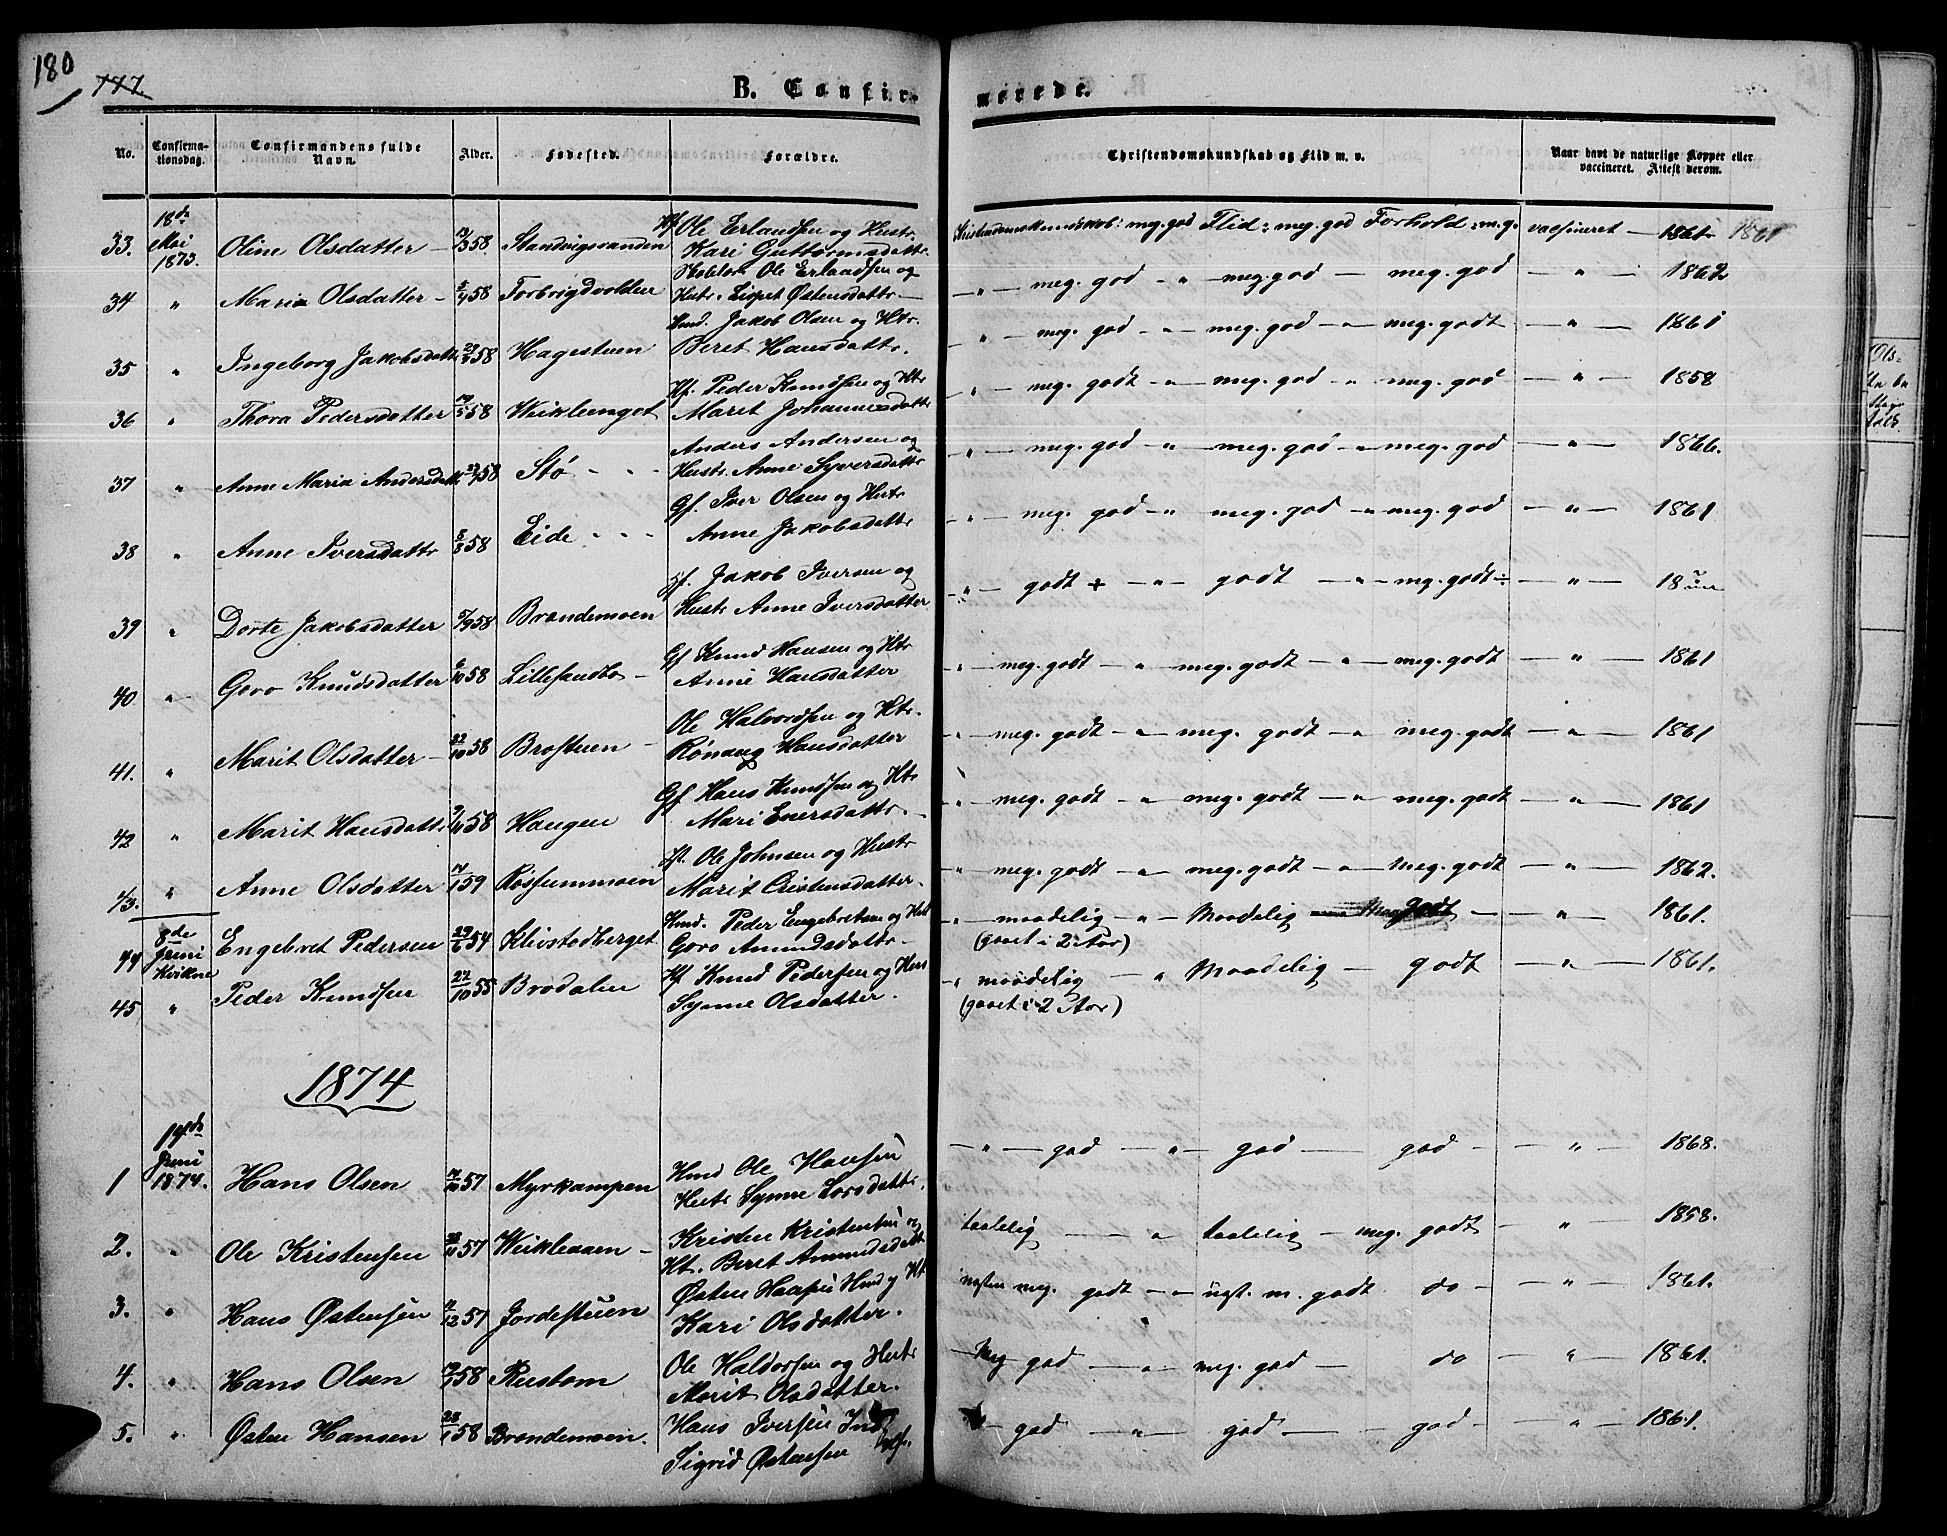 180
177.
B. Confirmerede.
No. Confirmationsdag. Confirmandens fulde Navn. Alder. Fødested. Forældre. Christendomskundskab og Flid m. v. Naar havt de naturlige Kopper eller vaccineret. Attest derom.
33. 18de Mai 1873. Oline Olsdatter 58 Strandvigsranden Hf Ole Erlandsen og Hustr. Kari Guttormsdattr. Kristendomskundskab: meg. god Flid: meg. god Forhold: m.g. vacsineret 1861 1861
34 " Maria Olsdatter 58 Forbrigdvolden Ole Erlandsen og Hustr. Lispet Østensdattr. " meg. god " meg. god meg. god " 1862
35 " Ingeborg Jakobsdatt. 58 Hagestuen Hmd. Jakob Olsen og Htr. Beret Hansdattr. " meg. god " meg. god " meg. godt " 1861
36 " Thora Pedersdatter 58 Weiklenget Hf. Peder Knudsen og Htr Marit Johannesdattr " meg. godt " meg. god " meg. god " 1858
37 " Anne Maria Andersdatt. 58 Stø Anders Andersen og Hustr. Anne Syversdattr " meg. god " meg. god " meg. god " 1866.
38 " Anne Iversdattr 58 Eide Gf. Iver Olsen og Hustr Anne Jakobsdattr " meg. god " meg. god " meg. god " 1861
39 " Dorte Jakobsdatter 5/9 58 Brandemoen Hf. Jakob Iversen og Hustr Anne Iversdatter " godt + " godt " meg. godt ÷ " 18
40 " Goro Knudsdatter 6/10 58 Lillesandbo Gf Knud Hansen og Htr Anne Hansdatter " meg. godt " meg. godt " meg. godt " 1861
41. " Marit Olsdatter 22/10 58 Brostuen Ole Halvordsen og Htr. Rønaug Hansdatter " meg. godt " meg. godt " meg. godt " 1861
42 " Marit Hansdattr 9/11 58 Haugen Gf Hans Knudsen og Htr Mari Enersdattr. " meg. godt " meg. godt " meg. godt " 1861
43. " Anne Olsdatter 59 Rosfummoen Hf. Ole Johnsen og Hustr Marit Cristensdatter. " meg. godt " meg. godt " meg. godt " 1862.
44 8de Juni Kvikne Engebret Pedersen 29/6 54 Klevstadberget Hmd. Peder Engebretsen og Hst Goro Amundsdattr " maadelig " Maadelig godt " 1861.
(gaaet i 2 Aar)
45 " Peder Knudsen 22/10 55 Brodalen Hf Knud Pedersen og Hus Synne Olsdatter. " maadelig " Maadelig godt " 1861.
(gaaet i 2 Aar)
1874
1 14de Juni 1874. Hans Olsen 57 Myrkampen Hmd Ole Hansen Hustr Synne Larsdattr. " god " god god " 1868.
2. " Ole Kristensen 57 Weikleaaen Kristen Kristensen og Ht. Beret Amundsdatt taalelig " taalelig meg. godt " 1858.
3. " Hans Østensen 57 Jordestuen Østen Hmd og Ht Kari Olsdatter. næsten meg. godt " næst. m. godt do " 1861.
4. " Hans Olsen 58 Rustom Ole Haldorsen og Hustr Marit Olsdatter. Meg god " meg. god do " 1861.
5. " Østen Hansen 28/1 58 Brandemoen. Hans Iversen Sigrid Østensen god " god god " 1861.